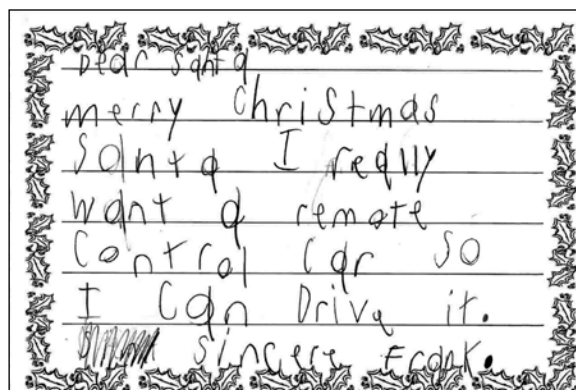 Dear Santa
merry Christmas
Santa I really
want a remote
Control Car so
I Can Drive it.
sincere Frank.